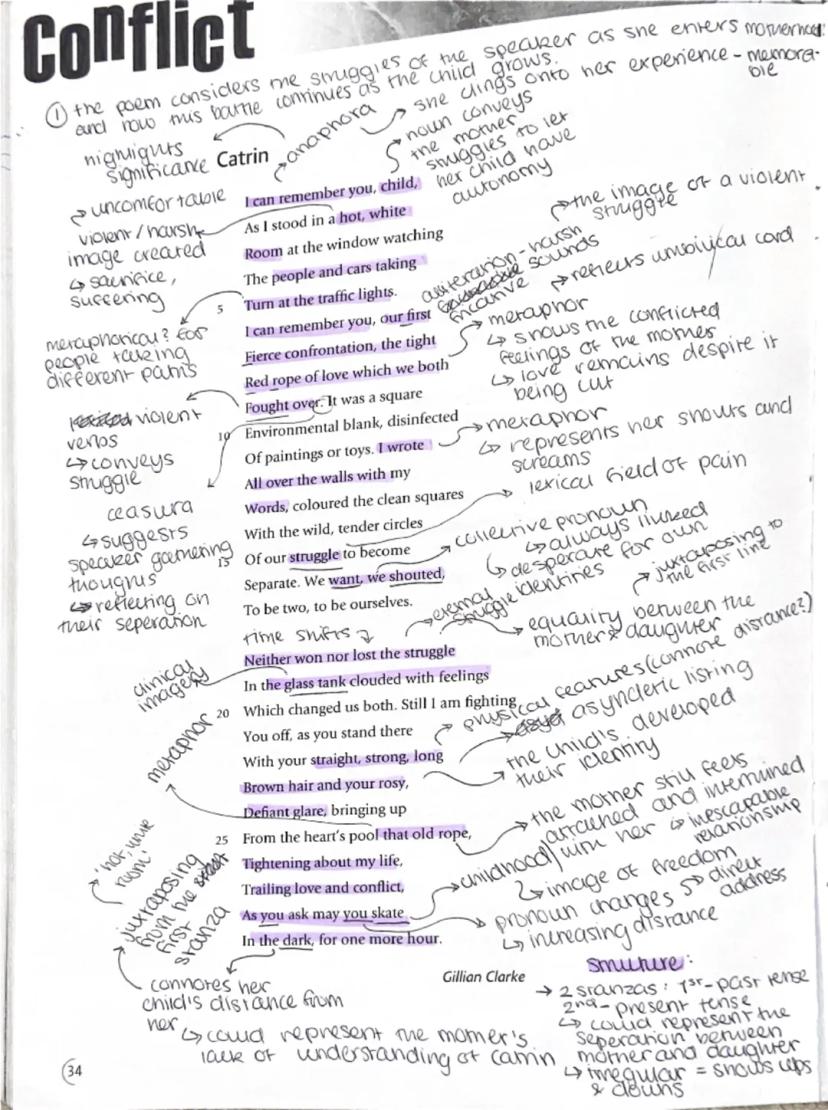 Conflict
① the poem considers the struggles of the speaker as she enters motherhood
and how this battle continues as the child grows.
she clings onto her experience - memora-
ble
anaphora
highlights
significance
Catrin
noun conveys
the mother
struggles to let
her child have
autonomy
I can remember you, child,
As I stood in a hot, white
Room at the window watching
The people and cars taking
5 Turn at the traffic lights.
I can remember you, our first
Fierce confrontation, the tight
Red rope of love which we both
Fought over. It was a square
10 Environmental blank, disinfected
Of paintings or toys. I wrote
All over the walls with my
Words, coloured the clean squares
With the wild, tender circles
15 Of our struggle to become
Separate. We want, we shouted,
To be two, to be ourselves.
Neither won nor lost the struggle
In the glass tank clouded with feelings
20 Which changed us both. Still I am fighting
You off, as you stand there
With your straight, strong, long
Brown hair and your rosy,
Defiant glare, bringing up
25 From the heart's pool that old rope,
Tightening about my life,
Trailing love and conflict,
As you ask may you skate
In the dark, for one more hour.
Gillian Clarke
uncomfortable
violent/harsh
image created
↳ sacrifice,
suffering
metaphorical? for
people taking
different paths
violent
verbs
↳ conveys
struggle
ceasura
↳ suggests
speaker gathering
thoughts
↳ reflecting on
their seperation
the image of a violent
struggle
alliteration - harsh
sounds
fricative
reflects umbilical cord
metaphor
↳ shows the conflicted
feelings of the mother
↳ love remains despite it
being cut
metaphor
↳ represents her shouts and
screams
lexical field of pain
collective pronoun
↳ always linked
↳ desperate for own
identities
time shifts
eternal
struggle
juxtaposing to
the first line
equality between the
mother & daughter
clinical
imagery
physical features (connote distance?)
asyndetic listing
the child's developed
their identity
metaphor
the mother still feels
attached and intertwined
with her
↳ inescapable
relationship
'hot, white
room'
juxtaposing
from the
first
stanza
childhood
↳ image of freedom
pronoun changes → direct
address
↳ increasing distance
connotes her
child's distance from
her
↳ could represent the mother's
lack of understanding of catrin
structure:
→ 2 stanzas: 1st - past tense
2nd - present tense
↳ could represent the
seperation between
mother and daughter
↳ irregular = shows ups
& downs
34